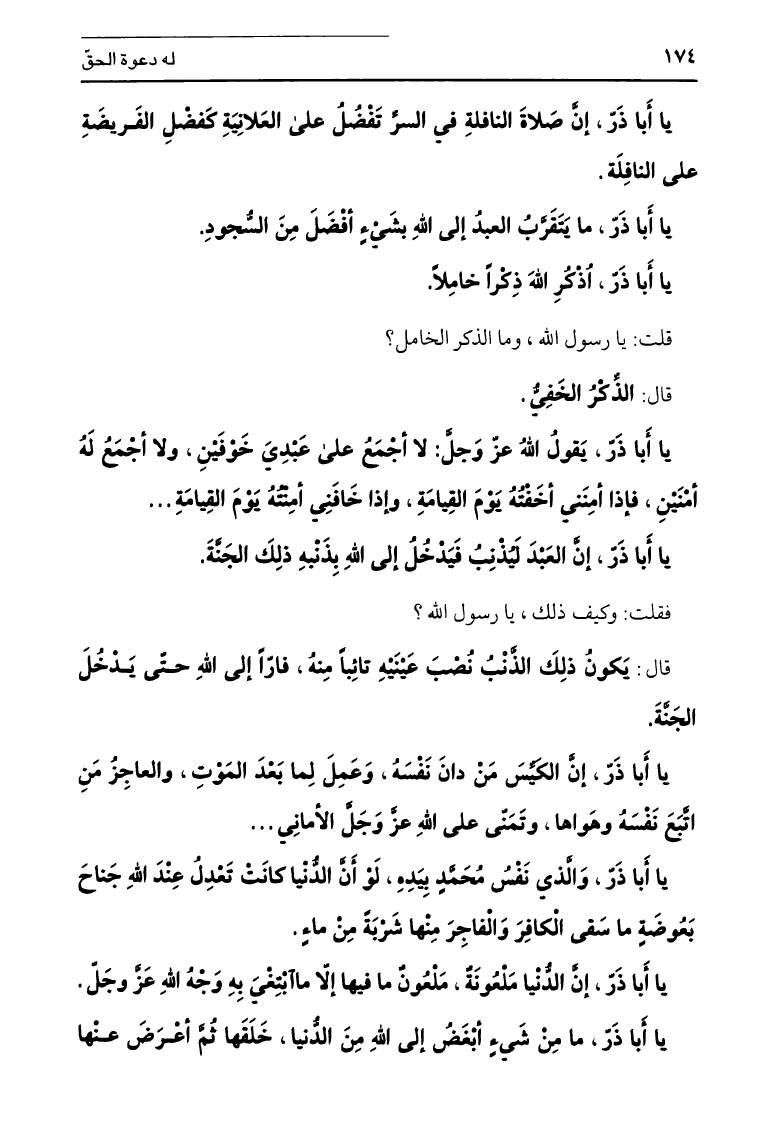 ١٧٤ له دعوة الحقّ
يا أَبا ذَرّ ، إنَّ صَلاةَ النافلةِ في السرِّ تَفْضُلُ علىٰ العَلانِيَةِ كَفضْلِ الفَـريضَةِ
على النافِلَة .
يا أَبا ذَرّ ، ما يَتَقَرَّبُ العبدُ إلى اللهِ بشَيْءٍ أفْضَلَ مِنَ السُّجودِ.
يا أَبا ذَرّ ، اُذْكُرِ اللهَ ذِكْراً خامِلاً.
قلت: يا رسول الله ، وما الذكر الخامل؟
قال: الذِّكْرُ الخَفِيُّ .
يا أَبا ذَرّ ، يَقولُ اللهُ عزّ وَجلَّ: لا أجْمَعُ علىٰ عَبْدِيَ خَوْفَيْنِ ، ولا أجْمَعُ لَهُ
أمْنَيْنِ ، فإذا أمِنَني أخَفْتُهُ يَوْمَ القِيامَةِ ، وإذا خَافَنِي أمِنْتُهُ يَوْمَ القِيامَةِ ...
يا أَبا ذَرّ ، إنَّ العَبْدَ لَيُذْنِبُ فَيَدْخُلُ إلى اللهِ بِذَنْبهِ ذلِكَ الجَنَّةَ.
فقلت: وكيف ذلك ، يا رسول الله ؟
قال : يَكونُ ذلِكَ الذَّنْبُ نُصْبَ عَيْنَيْهِ تائِباً مِنهُ ، فارّاً إلى اللهِ حـتّى يَـدْخُلَ
الجَنَّةَ.
يا أَبا ذَرّ ، إنَّ الكَيِّسَ مَنْ دانَ نَفْسَهُ ، وَعَمِلَ لِما بَعْدَ المَوْتِ ، والعاجِزُ مَنِ
اتَّبَعَ نَفْسَهُ وهَواها ، وتَمَنّى على اللهِ عزَّ وَجَلَّ الأمانِي ...
يا أَبا ذَرّ ، وَالَّذي نَفْسُ مُحَمَّدٍ بِيَدِهِ ، لَوْ أَنَّ الدُّنْيا كانَتْ تَعْدِلُ عِنْدَ اللهِ جَناحَ
بَعُوضَةٍ ما سَقى الْكافِرَ وَالْفاجِرَ مِنْها شَرْبَةً مِنْ ماءٍ .
يا أَبا ذَرّ ، إنَّ الدُّنْيا مَلْعُونَةٌ ، مَلْعُونٌ ما فيها إلّا ماآبْتِغْيَ بِهِ وَجْهُ اللهِ عَزَّ وجَلّ .
يا أَبا ذَرّ ، ما مِنْ شَيءٍ أبْغَضُ إلى اللهِ مِنَ الدُّنيا ، خَلَقَها ثُمَّ أعْـرَضَ عـنْها